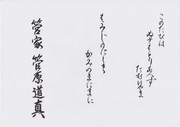 このたびは
ぬさもとりあへず
たむけやま
もみじのにしき
かみのまにまに
菅家 菅原道真